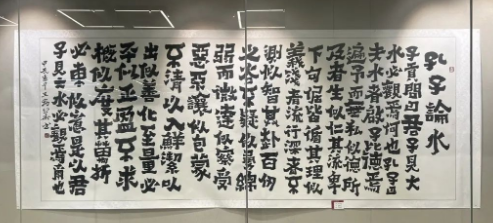 孔子論水
子貢問曰君子見大
水必觀焉何也孔子曰
夫水者啟子比德焉
遍予而無私似德所
及者生似仁其流卑
下句倨皆循其理似
義淺者流行深者不
測似智其赴百仞
之谷不疑似勇綿
弱而微達似察受
惡不讓似包蒙
不清以入鮮潔以
出似善化至量必
平似正盈不求
概似度其萬折
必東似意是以君
子見大水必觀焉爾也